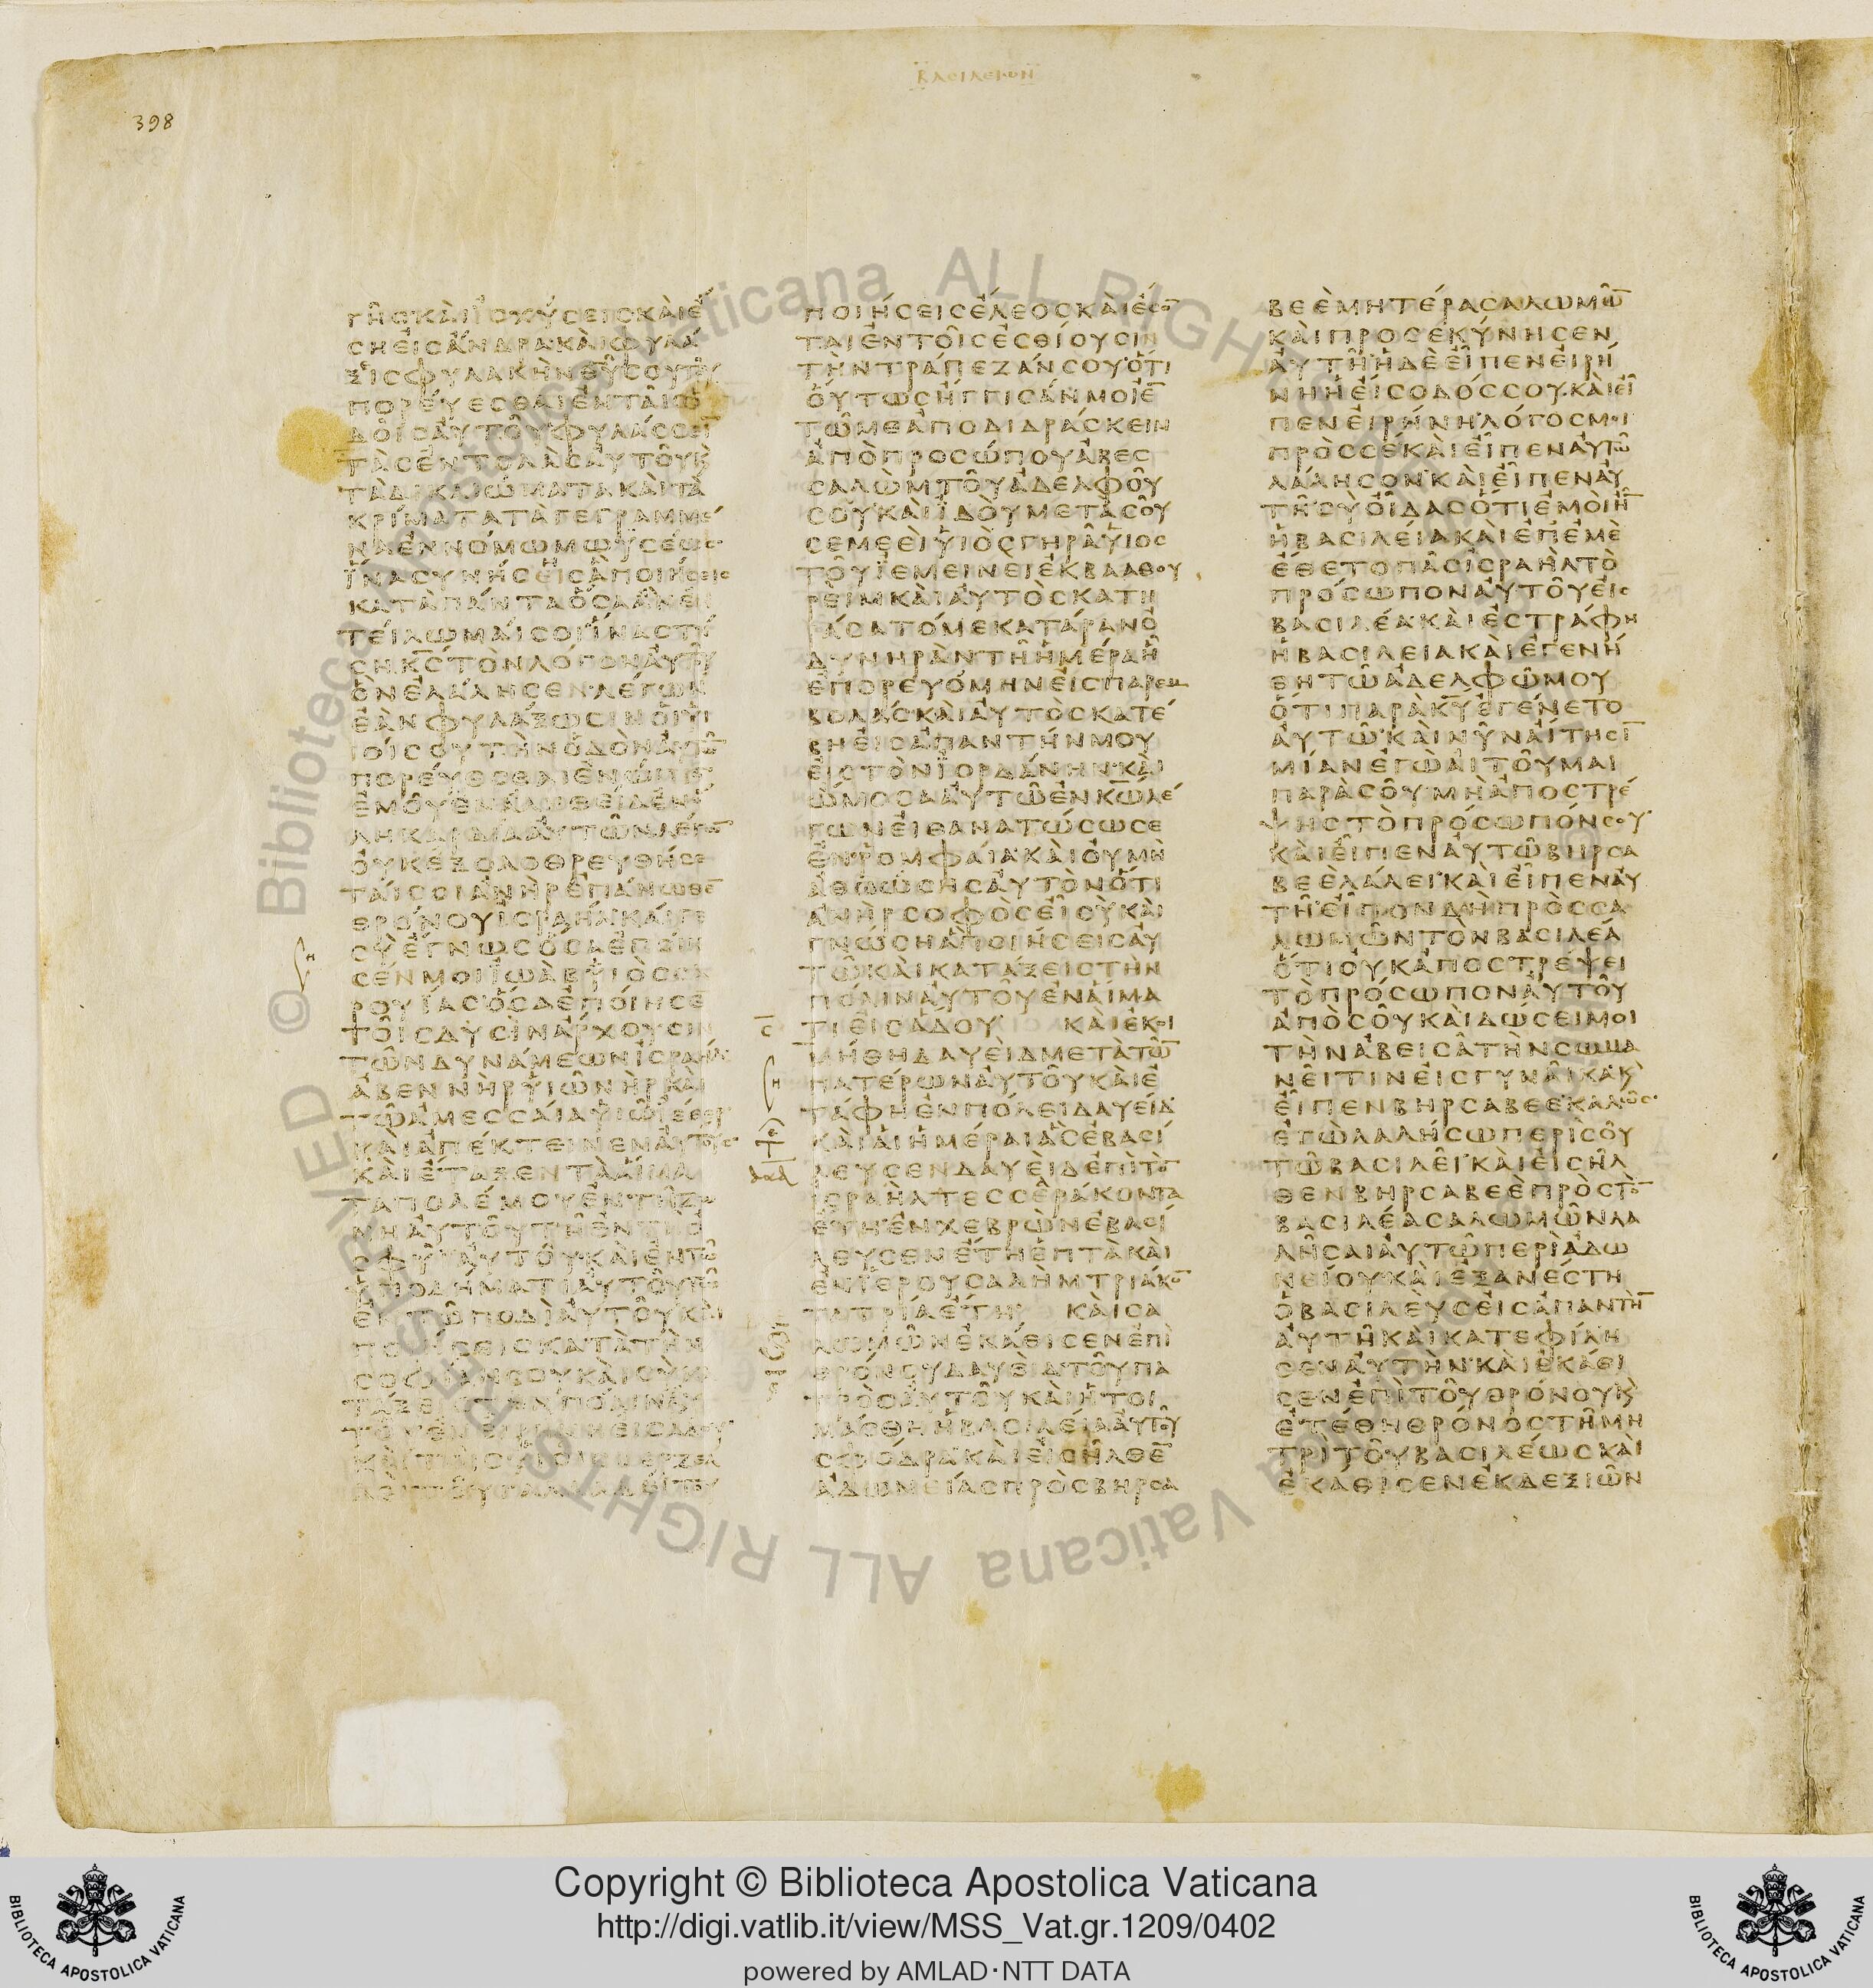 ΒΑΣΙΛΕΙΩΝ
398
ΓΗΣ ΚΑΙ ΙΣΧΥΣΕΙΣ ΚΑΙ Ε
ΣΗ ΕΙΣ ΑΝΔΡΑ ΚΑΙ ΦΥΛΑ
ΞΙΣ ΦΥΛΑΚΗΝ ΘΥ ΣΟΥ ΤΟΥ
ΠΟΡΕΥΕΣΘΑΙ ΕΝ ΤΑΙΣ Ο
ΔΟΙΣ ΑΥΤΟΥ ΦΥΛΑΣΣΙΝ
ΤΑΣ ΕΝΤΟΛΑΣ ΑΥΤΟΥ Κ
ΤΑ ΔΙΚΑΙΩΜΑΤΑ ΚΑΙ ΤΑ
ΚΡΙΜΑΤΑ ΤΑ ΓΕΓΡΑΜΜΕ
ΝΑ ΕΝ ΝΟΜΩ ΜΩΥΣΕΩΣ
ΙΝΑ ΣΥΝΗΣΕΙΣ Α ΠΟΙΗΣΕΙΣ
ΚΑΤΑ ΠΑΝΤΑ ΟΣΑ ΑΝ ΕΝ
ΤΕΙΛΩΜΑΙ ΣΟΙ ΙΝΑ ΣΤΗ
ΣΗ ΚΣ ΤΟΝ ΛΟΓΟΝ ΑΥΤΟΥ
ΟΝ ΕΛΑΛΗΣΕΝ ΛΕΓΩΝ
ΕΑΝ ΦΥΛΑΞΩΣΙΝ ΟΙ ΥΙ
ΟΙ ΣΟΥ ΤΗΝ ΟΔΟΝ ΑΥΤΩ
ΠΟΡΕΥΕΣΘΑΙ ΕΝΩΠΙΟ
ΕΜΟΥ ΕΝ ΑΛΗΘΕΙΑ ΕΝ Ο
ΛΗ ΚΑΡΔΙΑ ΑΥΤΩΝ ΛΕΓΩ
ΟΥΚ ΕΞΟΛΟΘΡΕΥΘΗΣΕ
ΤΑΙ ΣΟΙ ΑΝΗΡ ΕΠΑΝΩΘΕ
ΘΡΟΝΟΥ ΙΣΡΑΗΛ ΚΑΙ ΓΕ
ΣΥ ΕΓΝΩΣ ΟΣΑ ΕΠΟΙΗ
ΣΕΝ ΜΟΙ ΙΩΑΒ ΥΙΟΣ ΣΑ
ΡΟΥΙΑΣ ΟΣΑ ΕΠΟΙΗΣΕ
ΤΟΙΣ ΔΥΣΙΝ ΑΡΧΟΥΣΙΝ
ΤΩΝ ΔΥΝΑΜΕΩΝ ΙΣΡΑΗΛ
ΑΒΕΝΝΗΡ ΥΙΩ ΝΗΡ ΚΑΙ
ΤΩ ΑΜΕΣΣΑΙΑ ΥΙΩ ΙΕΘΕΡ
ΚΑΙ ΑΠΕΚΤΕΙΝΕΝ ΑΥΤΟΥΣ
ΚΑΙ ΕΤΑΞΕΝ ΤΑ ΑΙΜΑ
ΤΑ ΠΟΛΕΜΟΥ ΕΝ ΤΗ ΖΩ
ΝΗ ΑΥΤΟΥ ΤΗ ΕΝ ΤΗ Ο
ΣΦΥΙ ΑΥΤΟΥ ΚΑΙ ΕΝ ΤΩ
ΥΠΟΔΗΜΑΤΙ ΑΥΤΟΥ ΤΩ
ΕΝ ΤΩ ΠΟΔΙ ΑΥΤΟΥ ΚΑΙ
ΠΟΙΗΣΕΙΣ ΚΑΤΑ ΤΗΝ
ΣΟΦΙΑΝ ΣΟΥ ΚΑΙ ΟΥ ΚΑ
ΤΑΞΕΙΣ ΤΗΝ ΠΟΛΙΑΝ ΑΥ
ΤΟΥ ΕΝ ΕΙΡΗΝΗ ΕΙΣ ΑΔΟΥ
ΚΑΙ ΤΟΙΣ ΥΙΟΙΣ ΒΕΡΖΕΛ
ΛΕΙ ΤΟΥ ΓΑΛΑΑΔΕΙΤΟΥ
ΠΟΙΗΣΕΙΣ ΕΛΕΟΣ ΚΑΙ ΕΣΟ
ΤΑΙ ΕΝ ΤΟΙΣ ΕΣΘΙΟΥΣΙΝ
ΤΗΝ ΤΡΑΠΕΖΑΝ ΣΟΥ ΟΤΙ
ΟΥΤΩΣ ΗΓΓΙΣΑΝ ΜΟΙ Ε
ΤΩ ΜΕ ΑΠΟΔΙΔΡΑΣΚΕΙΝ
ΑΠΟ ΠΡΟΣΩΠΟΥ ΑΒΕΣ
ΣΑΛΩΜ ΤΟΥ ΑΔΕΛΦΟΥ
ΣΟΥ ΚΑΙ ΙΔΟΥ ΜΕΤΑ ΣΟΥ
ΣΕΜΕΕΙ ΥΙΟΣ ΓΗΡΑ ΥΙΟΣ
ΤΟΥ ΙΕΜΕΙΝΕΙ ΕΚ ΒΑΑΘΟΥ
ΡΕΙΜ ΚΑΙ ΑΥΤΟΣ ΚΑΤΗ
ΡΑΣΑΤΟ ΜΕ ΚΑΤΑΡΑΝ Ο
ΔΥΝΗΡΑΝ ΤΗ ΗΜΕΡΑ Η
ΕΠΟΡΕΥΟΜΗΝ ΕΙΣ ΠΑΡΕΜ
ΒΟΛΑΣ ΚΑΙ ΑΥΤΟΣ ΚΑΤΕ
ΒΗ ΕΙΣ ΑΠΑΝΤΗΝ ΜΟΥ
ΕΙΣ ΤΟΝ ΙΟΡΔΑΝΗΝ ΚΑΙ
ΩΜΟΣΑ ΑΥΤΩ ΕΝ ΚΩ ΛΕ
ΓΩΝ ΕΙ ΘΑΝΑΤΩΣΩ ΣΕ
ΕΝ ΡΟΜΦΑΙΑ ΚΑΙ ΟΥ ΜΗ
ΑΘΩΩΣΗΣ ΑΥΤΟΝ ΟΤΙ
ΑΝΗΡ ΣΟΦΟΣ ΕΙ ΣΥ ΚΑΙ
ΓΝΩΣΗ Α ΠΟΙΗΣΕΙΣ ΑΥ
ΤΩ ΚΑΙ ΚΑΤΑΞΕΙΣ ΤΗΝ
ΠΟΛΙΑΝ ΑΥΤΟΥ ΕΝ ΑΙΜΑ
ΤΙ ΕΙΣ ΑΔΟΥ ΚΑΙ ΕΚΟΙ
ΜΗΘΗ ΔΑΥΕΙΔ ΜΕΤΑ ΤΩ
ΠΑΤΕΡΩΝ ΑΥΤΟΥ ΚΑΙ Ε
ΤΑΦΗ ΕΝ ΠΟΛΕΙ ΔΑΥΕΙΔ
ΚΑΙ ΑΙ ΗΜΕΡΑΙ ΑΣ ΕΒΑΣΙ
ΛΕΥΣΕΝ ΔΑΥΕΙΔ ΕΠΙ ΤΟ
ΙΣΡΑΗΛ ΤΕΣΣΕΡΑΚΟΝΤΑ
ΕΤΗ ΕΝ ΧΕΒΡΩΝ ΕΒΑΣΙ
ΛΕΥΣΕΝ ΕΤΗ ΕΠΤΑ ΚΑΙ
ΕΝ ΙΕΡΟΥΣΑΛΗΜ ΤΡΙΑΚΟ
ΤΑ ΤΡΙΑ ΕΤΗ ΚΑΙ ΣΑ
ΛΩΜΩΝ ΕΚΑΘΙΣΕΝ ΕΠΙ
ΘΡΟΝΟΥ ΔΑΥΕΙΔ ΤΟΥ ΠΑ
ΤΡΟΣ ΑΥΤΟΥ ΚΑΙ ΗΤΟΙ
ΜΑΣΘΗ Η ΒΑΣΙΛΕΙΑ ΑΥΤΟΥ
ΣΦΟΔΡΑ ΚΑΙ ΕΙΣΗΛΘΕ
ΑΔΩΝΕΙΑΣ ΠΡΟΣ ΒΗΡΣΑ
ΒΕΕ ΜΗΤΕΡΑ ΣΑΛΩΜΩ
ΚΑΙ ΠΡΟΣΕΚΥΝΗΣΕΝ
ΑΥΤΗ Η ΔΕ ΕΙΠΕΝ ΕΙΡΗ
ΝΗ Η ΕΙΣΟΔΟΣ ΣΟΥ ΚΑΙ ΕΙ
ΠΕΝ ΕΙΡΗΝΗ ΛΟΓΟΣ ΜΟΙ
ΠΡΟΣ ΣΕ ΚΑΙ ΕΙΠΕΝ ΑΥΤΩ
ΛΑΛΗΣΟΝ ΚΑΙ ΕΙΠΕΝ ΑΥ
ΤΗ ΣΥ ΟΙΔΑΣ ΟΤΙ ΕΜΟΙ Η
Η ΒΑΣΙΛΕΙΑ ΚΑΙ ΕΠ ΕΜΕ
ΕΘΕΤΟ ΠΑΣ ΙΣΡΑΗΛ ΤΟ
ΠΡΟΣΩΠΟΝ ΑΥΤΟΥ ΕΙΣ
ΒΑΣΙΛΕΑ ΚΑΙ ΕΣΤΡΑΦΗ
Η ΒΑΣΙΛΕΙΑ ΚΑΙ ΕΓΕΝΗ
ΘΗ ΤΩ ΑΔΕΛΦΩ ΜΟΥ
ΟΤΙ ΠΑΡΑ ΚΥ ΕΓΕΝΕΤΟ
ΑΥΤΩ ΚΑΙ ΝΥΝ ΑΙΤΗΣΙ
ΜΙΑΝ ΕΓΩ ΑΙΤΟΥΜΑΙ
ΠΑΡΑ ΣΟΥ ΜΗ ΑΠΟΣΤΡΕ
ΨΗΣ ΤΟ ΠΡΟΣΩΠΟΝ ΣΟΥ
ΚΑΙ ΕΙΠΕΝ ΑΥΤΩ ΒΗΡΣΑ
ΒΕΕ ΛΑΛΕΙ ΚΑΙ ΕΙΠΕΝ ΑΥ
ΤΗ ΕΙΠΟΝ ΔΗ ΠΡΟΣ ΣΑ
ΛΩΜΩΝ ΤΟΝ ΒΑΣΙΛΕΑ
ΟΤΙ ΟΥΚ ΑΠΟΣΤΡΕΨΕΙ
ΤΟ ΠΡΟΣΩΠΟΝ ΑΥΤΟΥ
ΑΠΟ ΣΟΥ ΚΑΙ ΔΩΣΕΙ ΜΟΙ
ΤΗΝ ΑΒΕΙΣΑ ΤΗΝ ΣΩΜΑ
ΝΕΙΤΙΝ ΕΙΣ ΓΥΝΑΙΚΑ Κ
ΕΙΠΕΝ ΒΗΡΣΑΒΕΕ ΚΑΛΩΣ
ΕΓΩ ΛΑΛΗΣΩ ΠΕΡΙ ΣΟΥ
ΤΩ ΒΑΣΙΛΕΙ ΚΑΙ ΕΙΣΗΛ
ΘΕΝ ΒΗΡΣΑΒΕΕ ΠΡΟΣ ΤΟ
ΒΑΣΙΛΕΑ ΣΑΛΩΜΩΝ ΛΑ
ΛΗΣΑΙ ΑΥΤΩ ΠΕΡΙ ΑΔΩ
ΝΕΙΟΥ ΚΑΙ ΕΞΑΝΕΣΤΗ
Ο ΒΑΣΙΛΕΥΣ ΕΙΣ ΑΠΑΝΤΗ
ΑΥΤΗ ΚΑΙ ΚΑΤΕΦΙΛΗ
ΣΕΝ ΑΥΤΗΝ ΚΑΙ ΕΚΑΘΙ
ΣΕΝ ΕΠΙ ΤΟΥ ΘΡΟΝΟΥ Κ
ΕΤΕΘΗ ΘΡΟΝΟΣ ΤΗ ΜΗ
ΤΡΙ ΤΟΥ ΒΑΣΙΛΕΩΣ ΚΑΙ
ΕΚΑΘΙΣΕΝ ΕΚ ΔΕΞΙΩΝ
© Biblioteca Apostolica Vaticana ALL RIGHTS RESERVED
Copyright © Biblioteca Apostolica Vaticana
http://digi.vatlib.it/view/MSS_Vat.gr.1209/0402
powered by AMLAD·NTT DATA
BIBLIOTECA APOSTOLICA VATICANA
BIBLIOTECA APOSTOLICA VATICANA